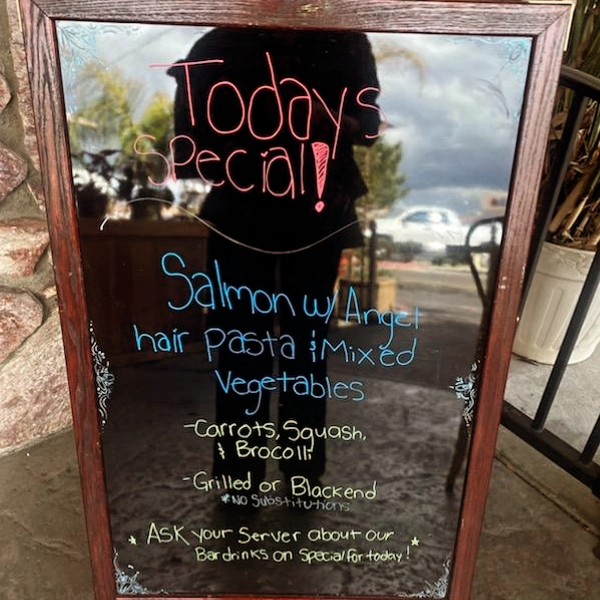 Todays
Special!
Salmon w/ Angel
hair Pasta & Mixed
Vegetables
-Carrots, Squash,
& Brocolli
-Grilled or Blackend
*No Substitutions
* Ask your Server about our *
Bar drinks on Special for today!